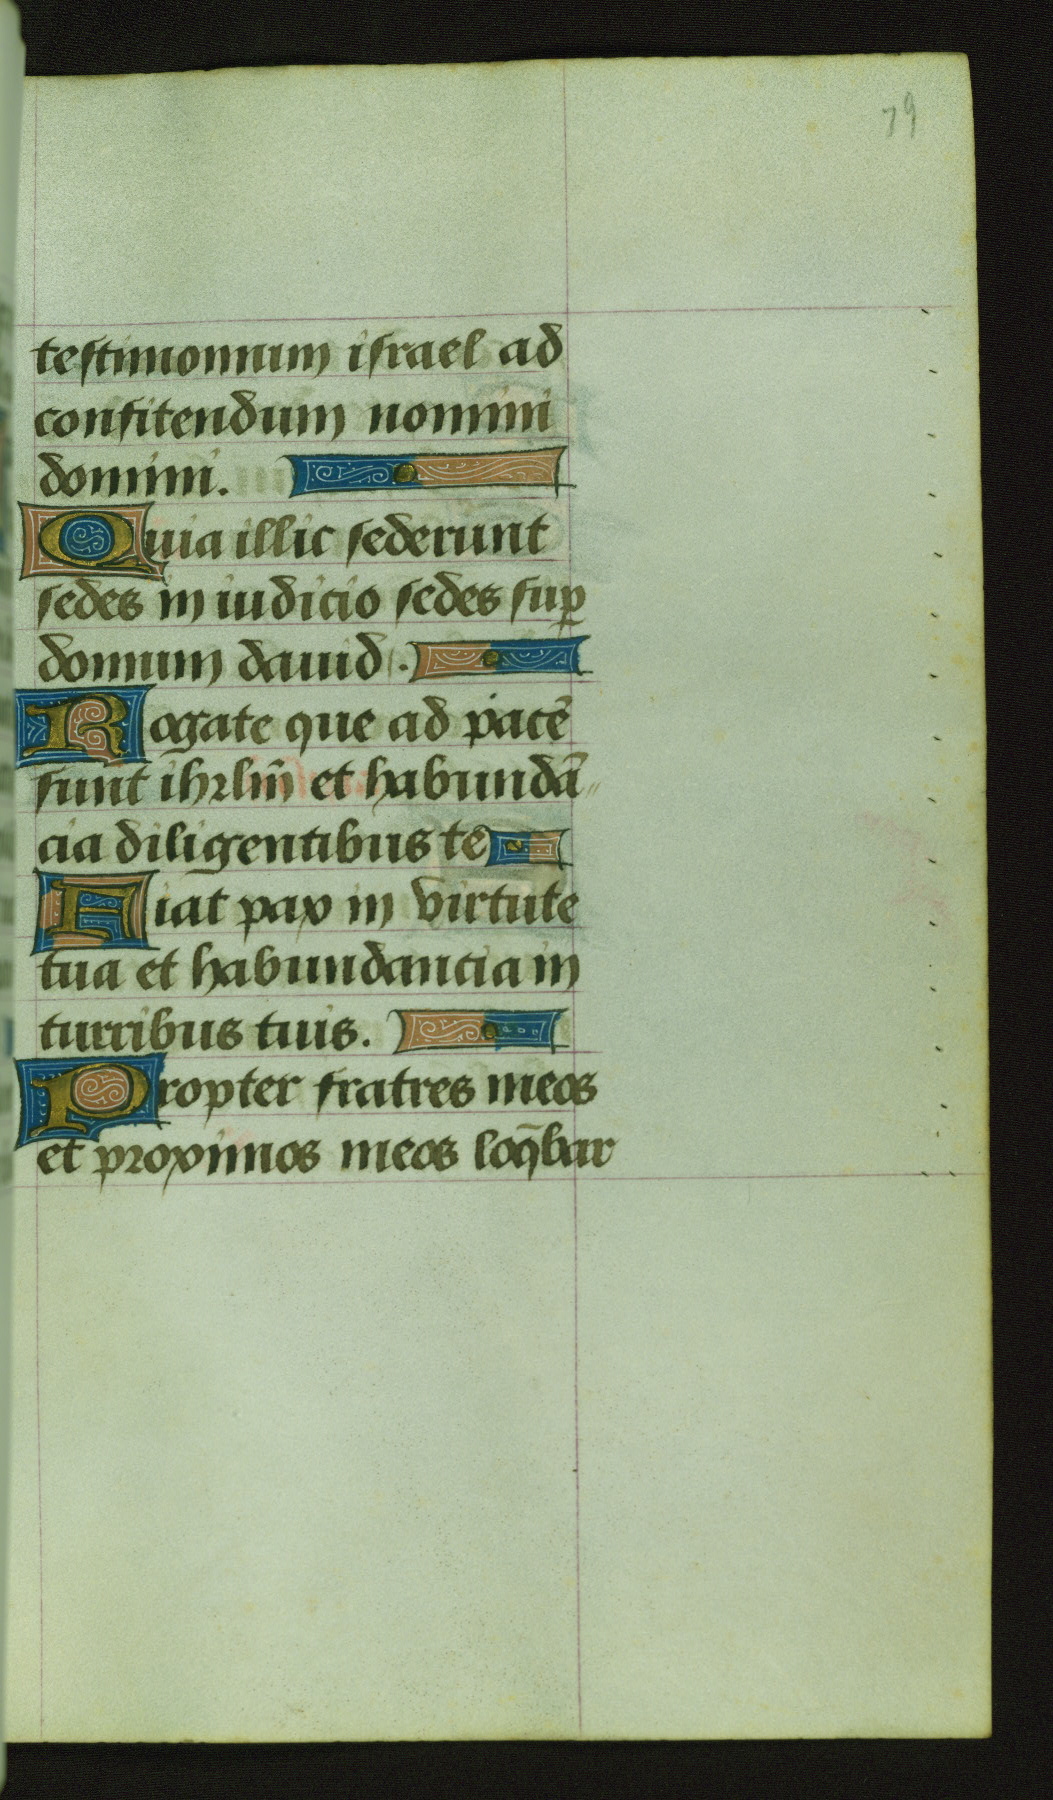 79
testimonium israel ad
confitendum nomini
domini.
Quia illic sederunt
sedes in iudicio sedes suꝑ
domum dauid.
Rogate que ad pacē
sunt ihrlm̄ et habundā
cia diligentibus te
Fiat pax in virtute
tua et habundancia in
turribus tuis.
Propter fratres meos
et proximos meos loq̄bar